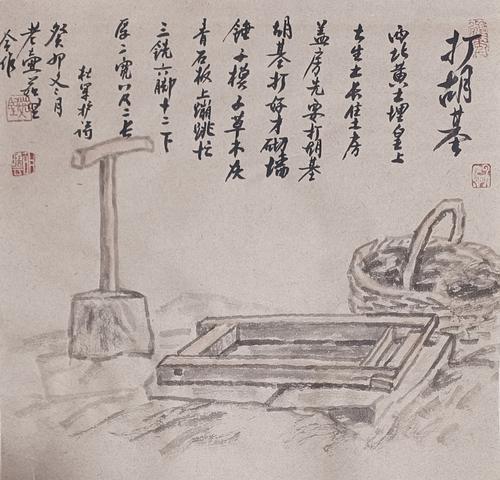 打胡基
西北黄土埋皇上
土生土长住土房
盖房先要打胡基
胡基打好才砌墙
锤子模子草木灰
青石板上蹦跳忙
三锨六脚十二下
厚二宽八尺二长
杜军护诗
癸卯冬月
老
令作